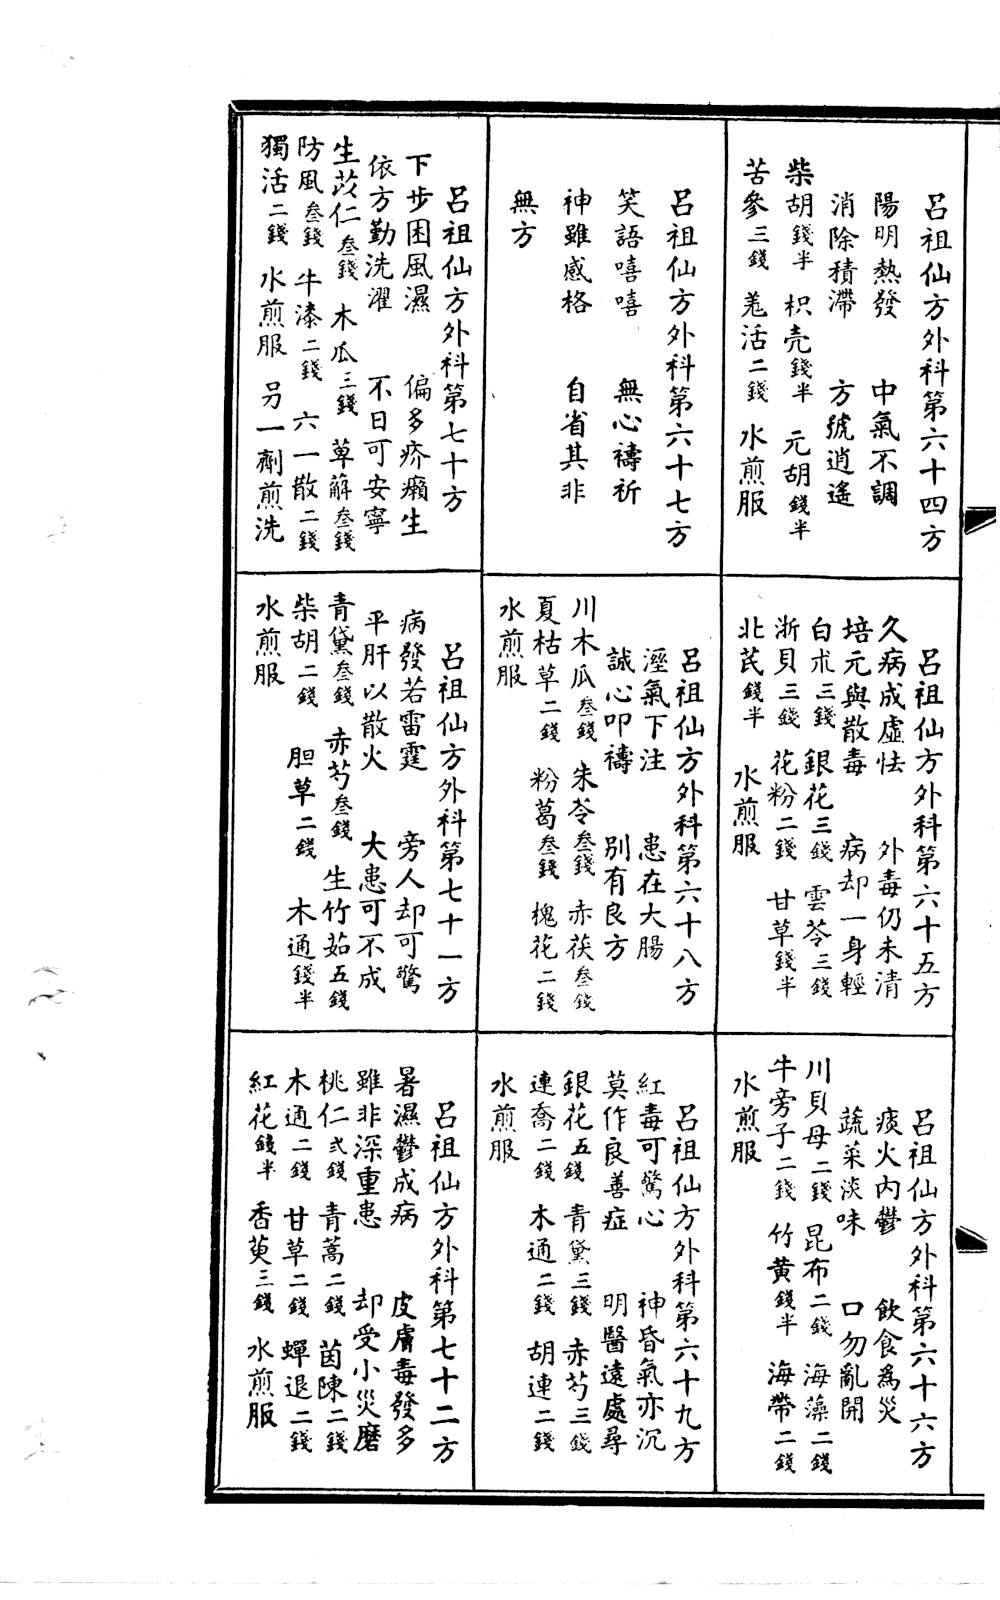 呂祖仙方外科第六十四方
陽明熱發 中氣不調
消除積滯 方號逍遙
柴胡錢半 枳壳錢半 元胡錢半
苦參三錢 羗活二錢 水煎服
呂祖仙方外科第六十五方
久病成虛怯 外毒仍未清
培元與散毒 病却一身輕
白朮三錢 銀花三錢 雲苓三錢
浙貝三錢 花粉二錢 甘草錢半
北芪錢半 水煎服
呂祖仙方外科第六十六方
痰火內鬱 飲食爲災
蔬菜淡味 口勿亂開
川貝母二錢 昆布二錢 海藻二錢
牛旁子二錢 竹黄錢半 海帶二錢
水煎服
呂祖仙方外科第六十七方
笑語嘻嘻 無心禱祈
神雖感格 自省其非
無方
呂祖仙方外科第六十八方
溼氣下注 患在大腸
誠心叩禱 別有良方
川木瓜叁錢 朱苓叁錢 赤茯叁錢
夏枯草二錢 粉葛叁錢 槐花二錢
水煎服
呂祖仙方外科第六十九方
紅毒可驚心 神昏氣亦沉
莫作良善症 明醫遠處尋
銀花五錢 青黛三錢 赤芍三錢
連喬二錢 木通二錢 胡連二錢
水煎服
呂祖仙方外科第七十方
下步困風濕 偏多疥癩生
依方勤洗濯 不日可安寧
生苡仁叁錢 木瓜三錢 萆薢叁錢
防風叁錢 牛漆二錢 六一散二錢
獨活二錢 水煎服 另一劑煎洗
呂祖仙方外科第七十一方
病發若雷霆 旁人却可驚
平肝以散火 大患可不成
青黛叁錢 赤芍叁錢 生竹茹五錢
柴胡二錢 胆草二錢 木通錢半
水煎服
呂祖仙方外科第七十二方
暑濕鬱成病 皮膚毒發多
雖非深重患 却受小災磨
桃仁弍錢 青蒿二錢 茵陳二錢
木通二錢 甘草二錢 蟬退二錢
紅花錢半 香茰三錢 水煎服